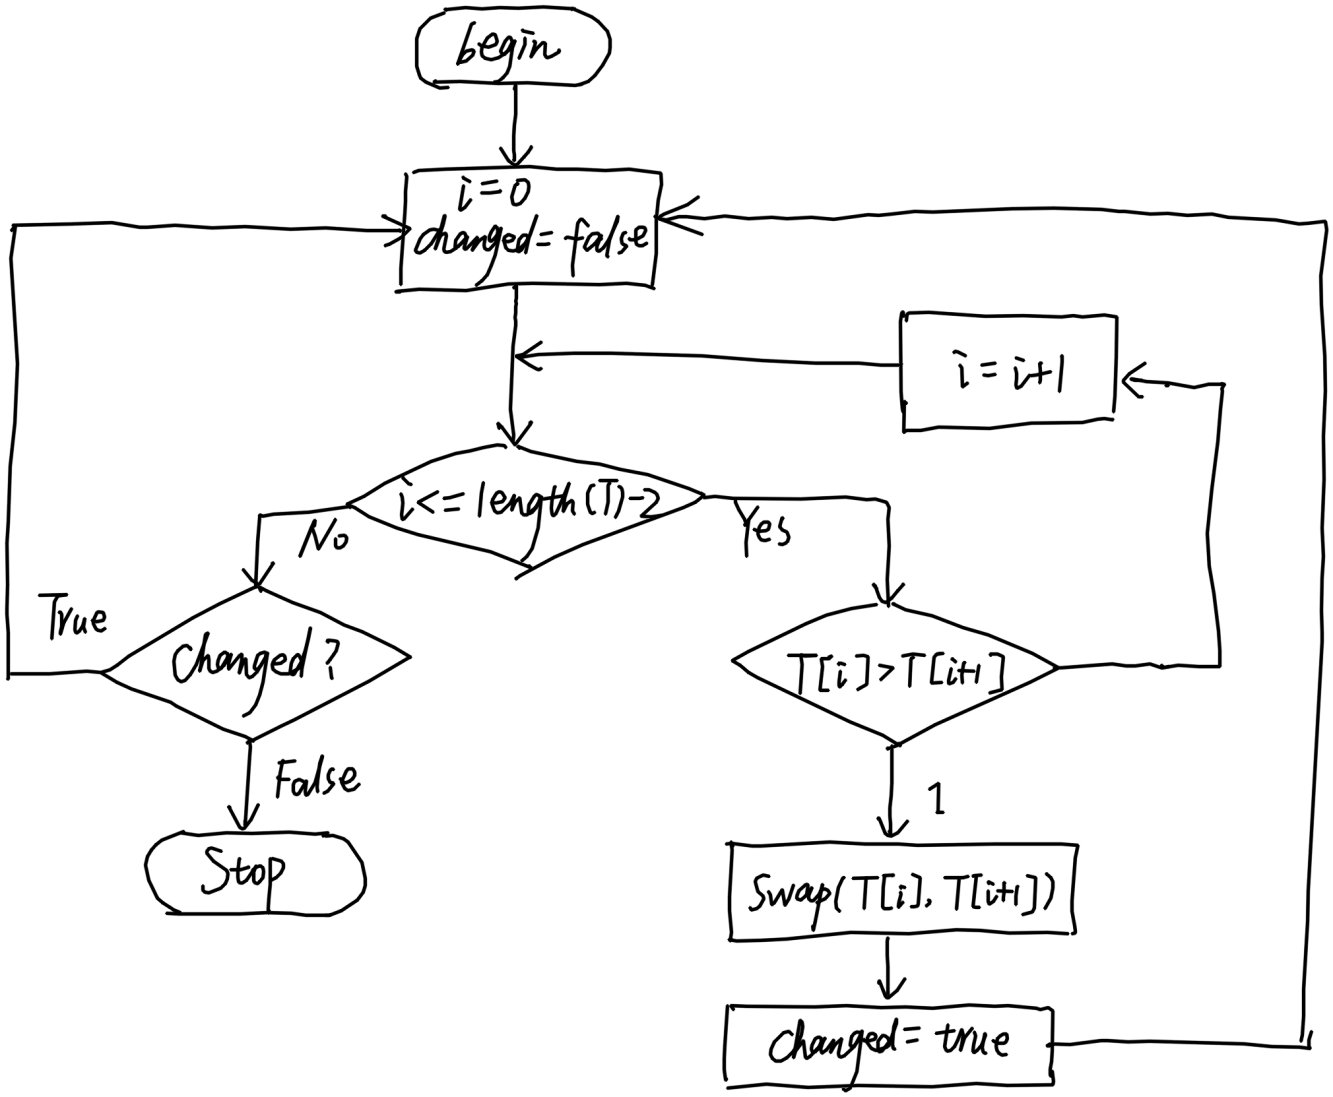 begin
i=0
changed=false
i=i+1
i<=length(T)-2
No
Yes
True
Changed?
T[i]>T[i+1]
False
1
Stop
Swap(T[i], T[i+1])
changed=true